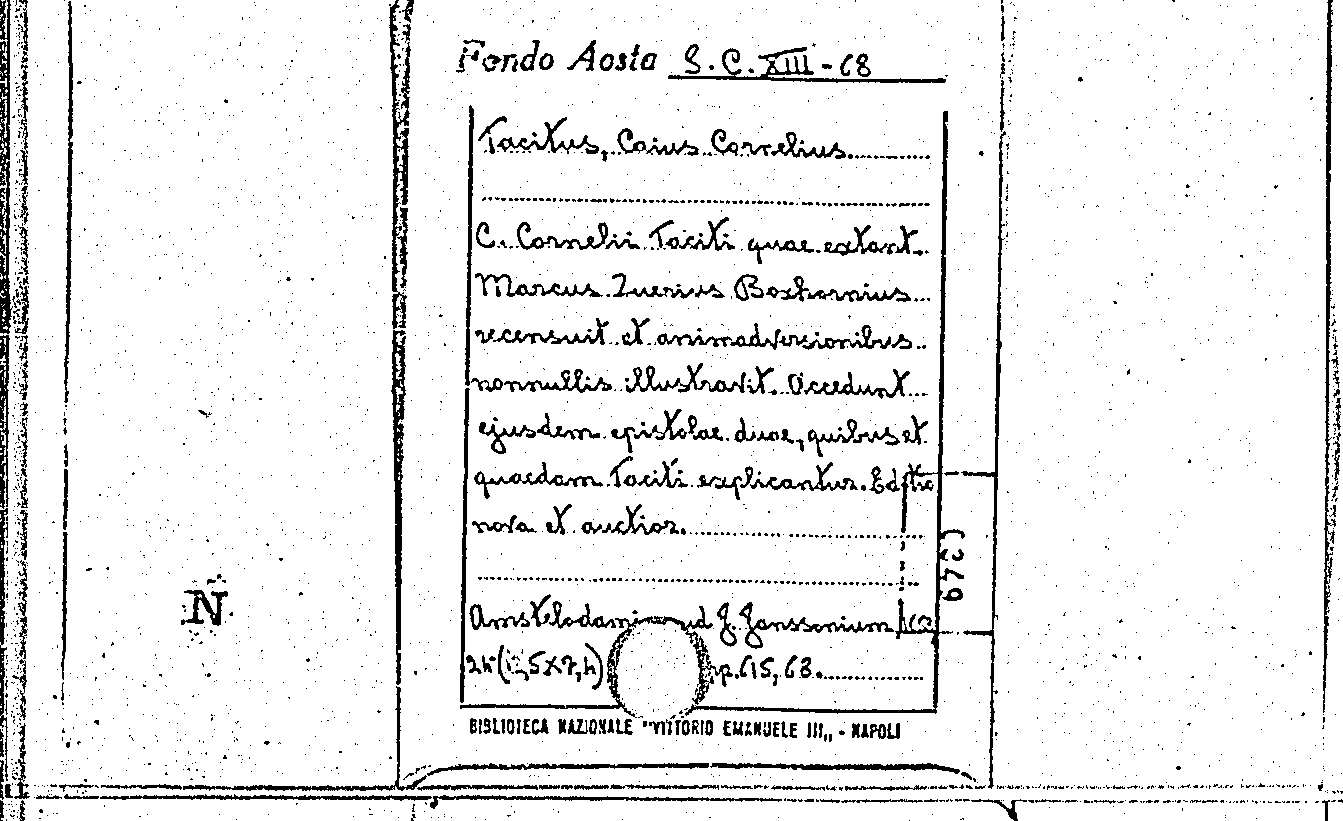 Fondo Aosta S.C. XIII-68
Tacitus, Caius Cornelius
C. Cornelii Taciti quae extant.
Marcus Zuerius Boxhornius
recensuit et animadversionibus
nonnullis illustravit. Accedunt
ejusdem epistolae duae, quibus et
quaedam Taciti explicantur. Editio
nova et auctior.
Amstelodami J. Janssonium
24° pp. 615, 68.
BIBLIOTECA NAZIONALE "VITTORIO EMANUELE III„ - NAPOLI
N